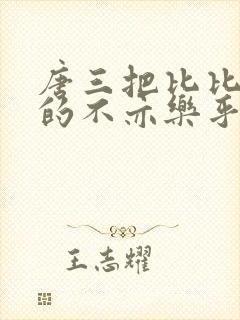 唐三把比比
的不亦樂乎
王志耀